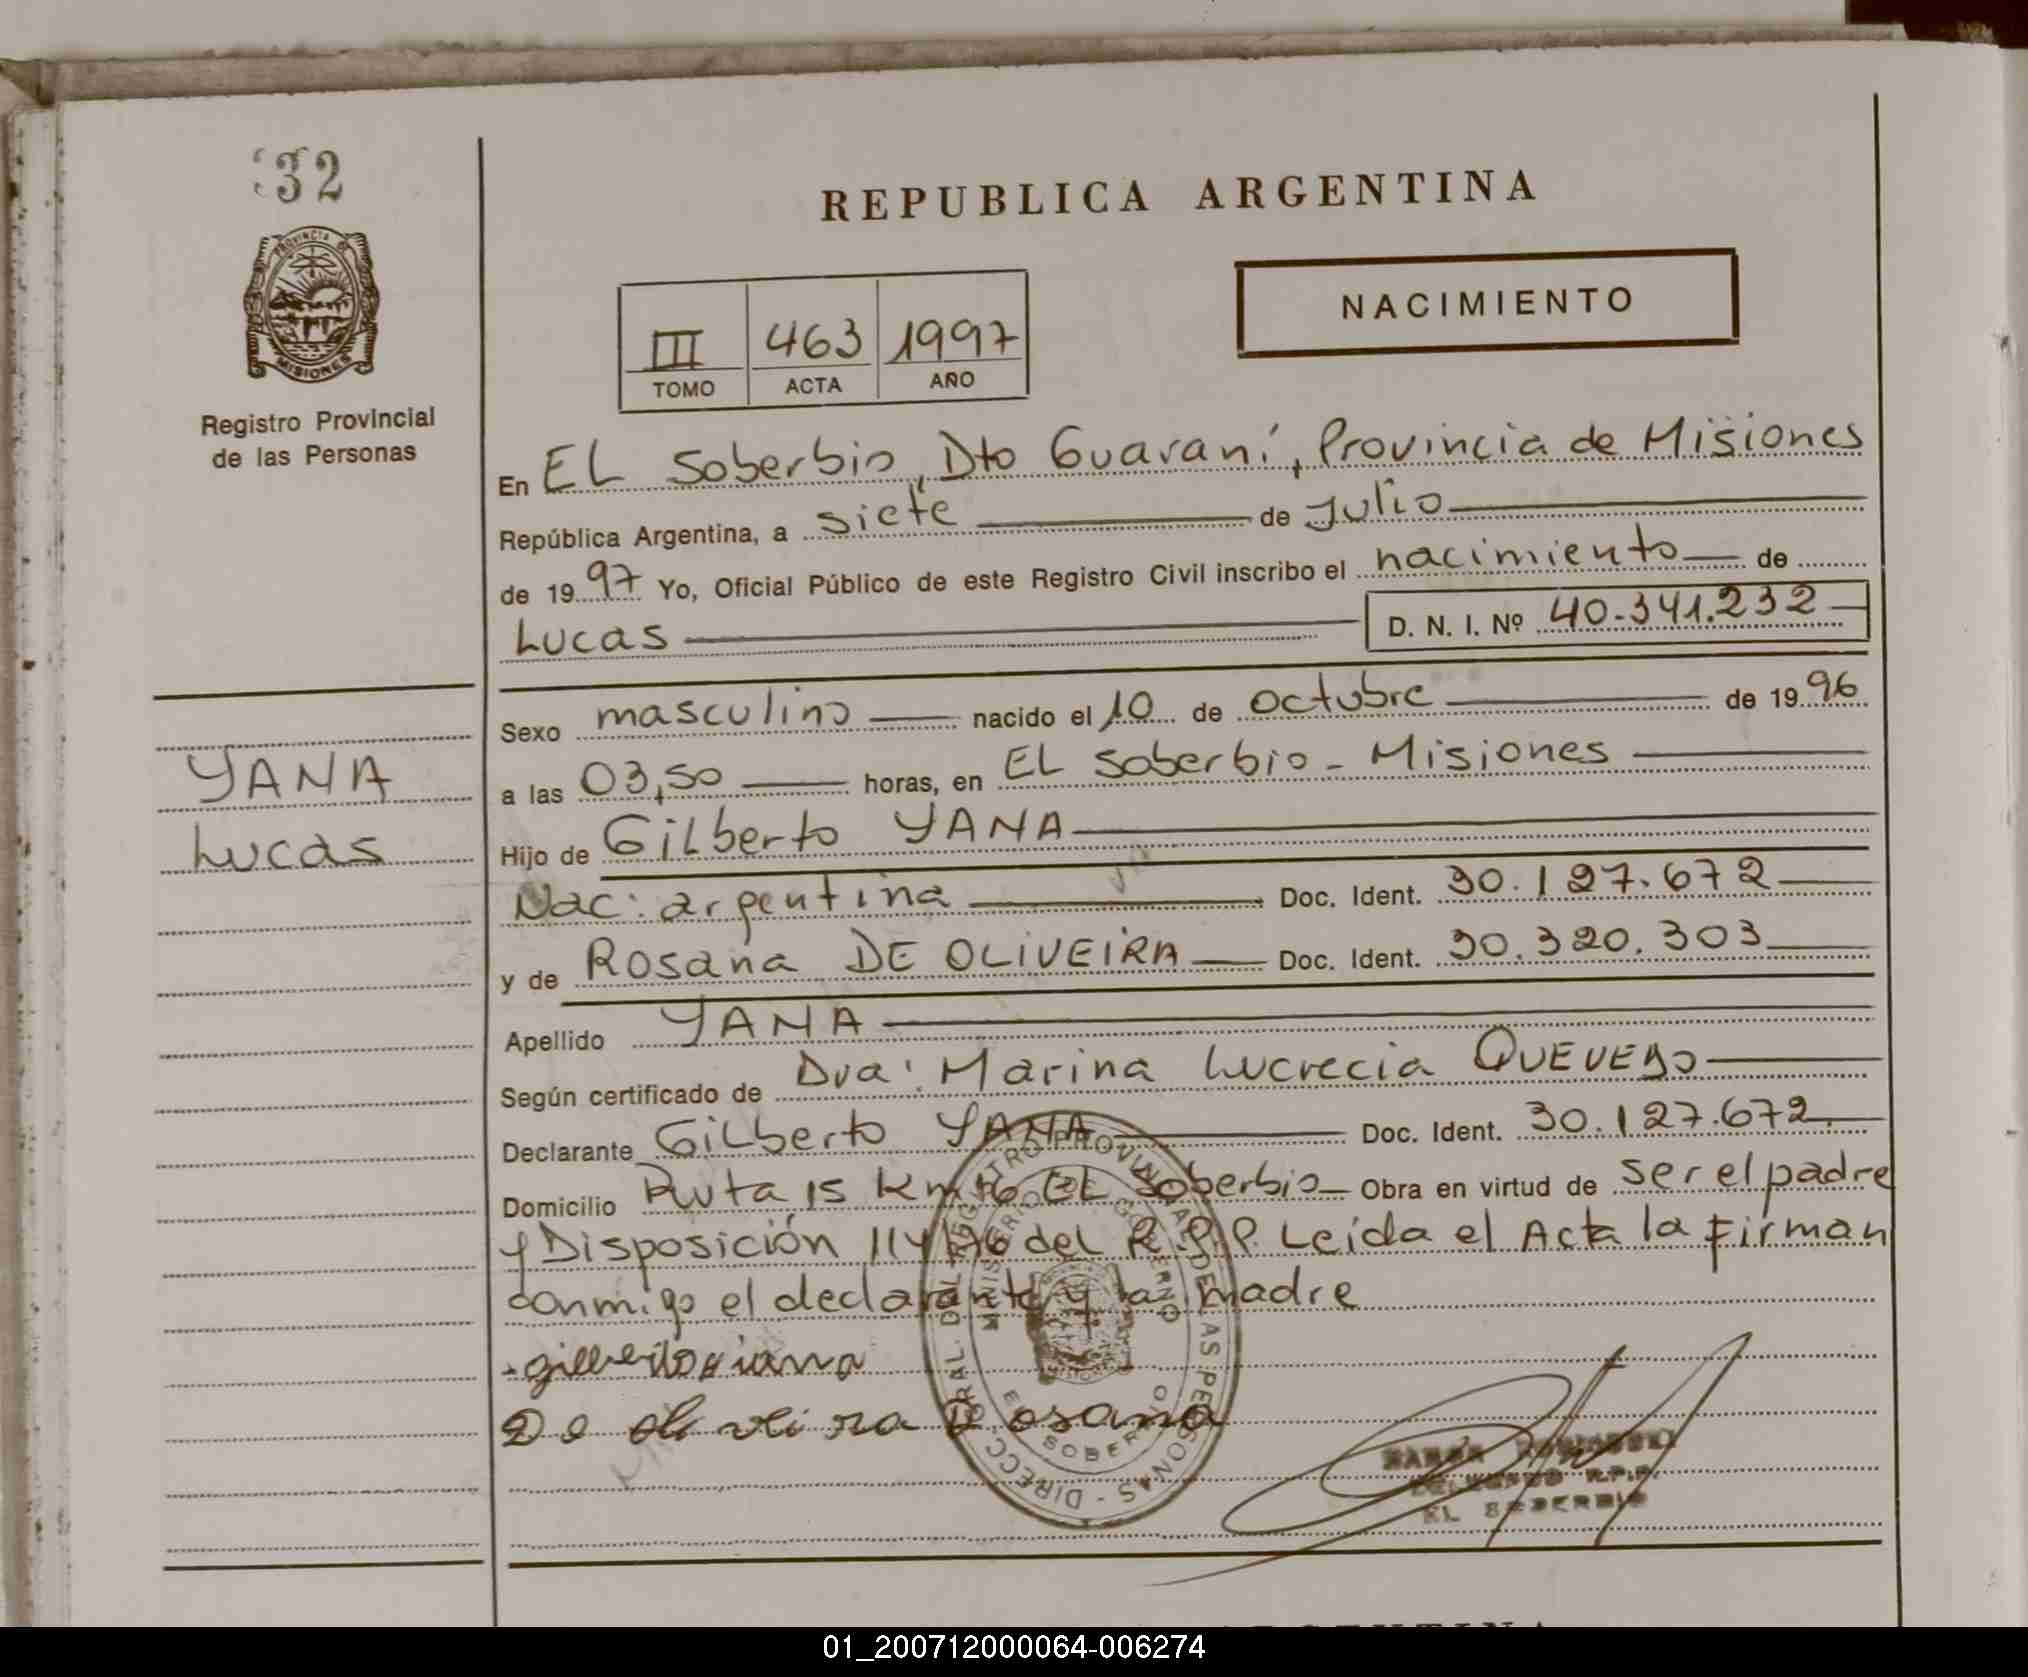 32
PROVINCIA DE
MISIONES
Registro Provincial
de las Personas
YANA
Lucas
REPUBLICA ARGENTINA
NACIMIENTO
III 463 1997
TOMO ACTA AÑO
En EL Soberbio, Dto Guaraní, Provincia de Misiones
República Argentina, a siete de Julio
de 1997 Yo, Oficial Público de este Registro Civil inscribo el nacimiento de
Lucas D. N. I. Nº 40.341.232
Sexo masculino nacido el 10 de octubre de 1996
a las 03,50 horas, en EL Soberbio - Misiones
Hijo de Gilberto YANA
Nac: argentina Doc. Ident. 30.127.672
y de Rosana DE OLIVEIRA Doc. Ident. 30.320.303
Apellido YANA
Según certificado de Dra: Marina Lucrecia QUEVEDO
Declarante Gilberto YANA Doc. Ident. 30.127.672
Domicilio Ruta 15 Km EL Soberbio Obra en virtud de ser el padre
y Disposición del R.P.P. Leída el Acta la Firman
conmigo el declarante y la madre
De oliveira Rosana
DIRECC GRAL. DEL REGISTRO PROVINCIAL DE LAS PERSONAS
MINISTERIO DE GOBIERNO
EL SOBERBIO
R.P.P.
EL SOBERBIO
01_200712000064-006274